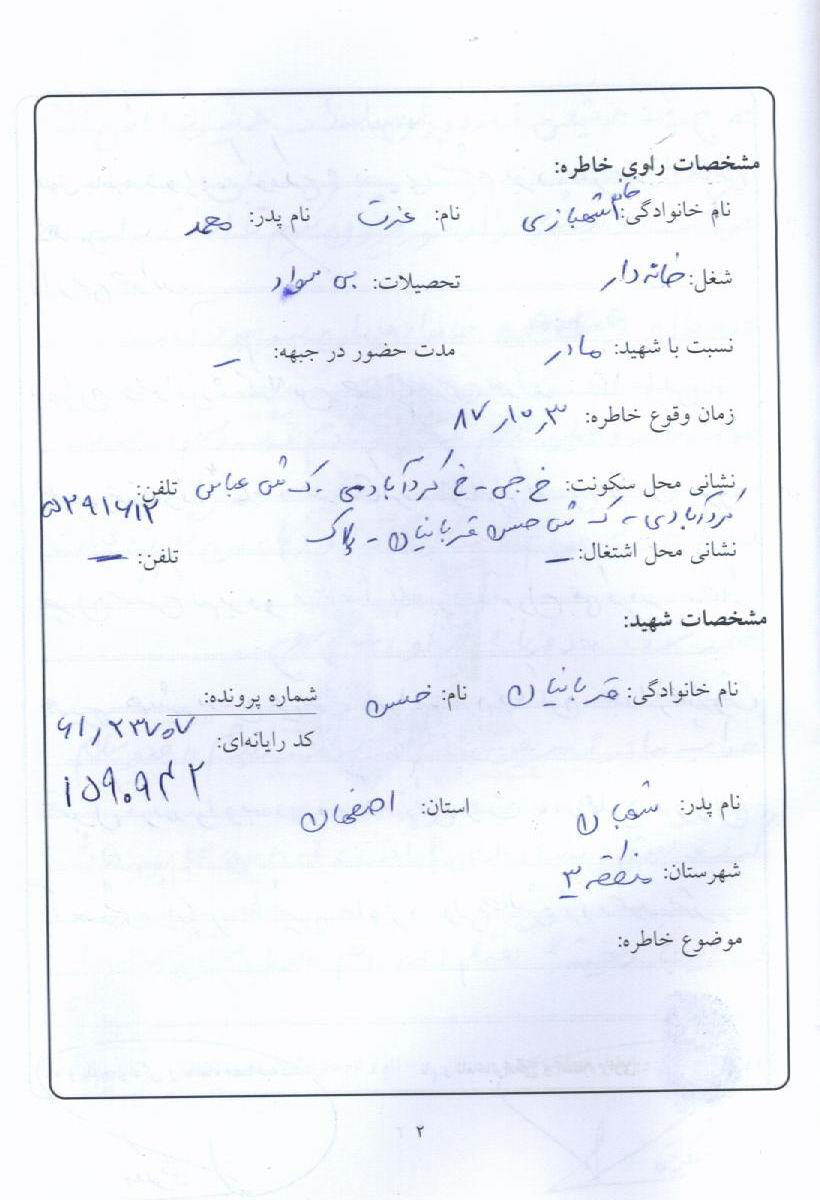 مشخصات راوی خاطره:
نام خانوادگی: خانم شهبازی نام: عزت نام پدر: محمد
شغل: خانه دار تحصیلات: بی سواد
نسبت با شهید: مادر مدت حضور در جبهه: –
زمان وقوع خاطره: ۸۷٫۱۰٫۳
نشانی محل سکونت: خ جی - خ کردآبادی - ک ش عباس تلفن: ۵۲۹۱۶۱۲
کردآبادی - ک ش حسن قربانیان - پلاک
نشانی محل اشتغال: – تلفن: –
مشخصات شهید:
نام خانوادگی: قربانیان نام: حسن شماره پرونده: ۶۱٫۲۳۷۰۷
کد رایانه‌ای: ۱۵۹۰۹۴۲
نام پدر: شعبان استان: اصفهان
شهرستان: منطقه ۳
موضوع خاطره:
۲